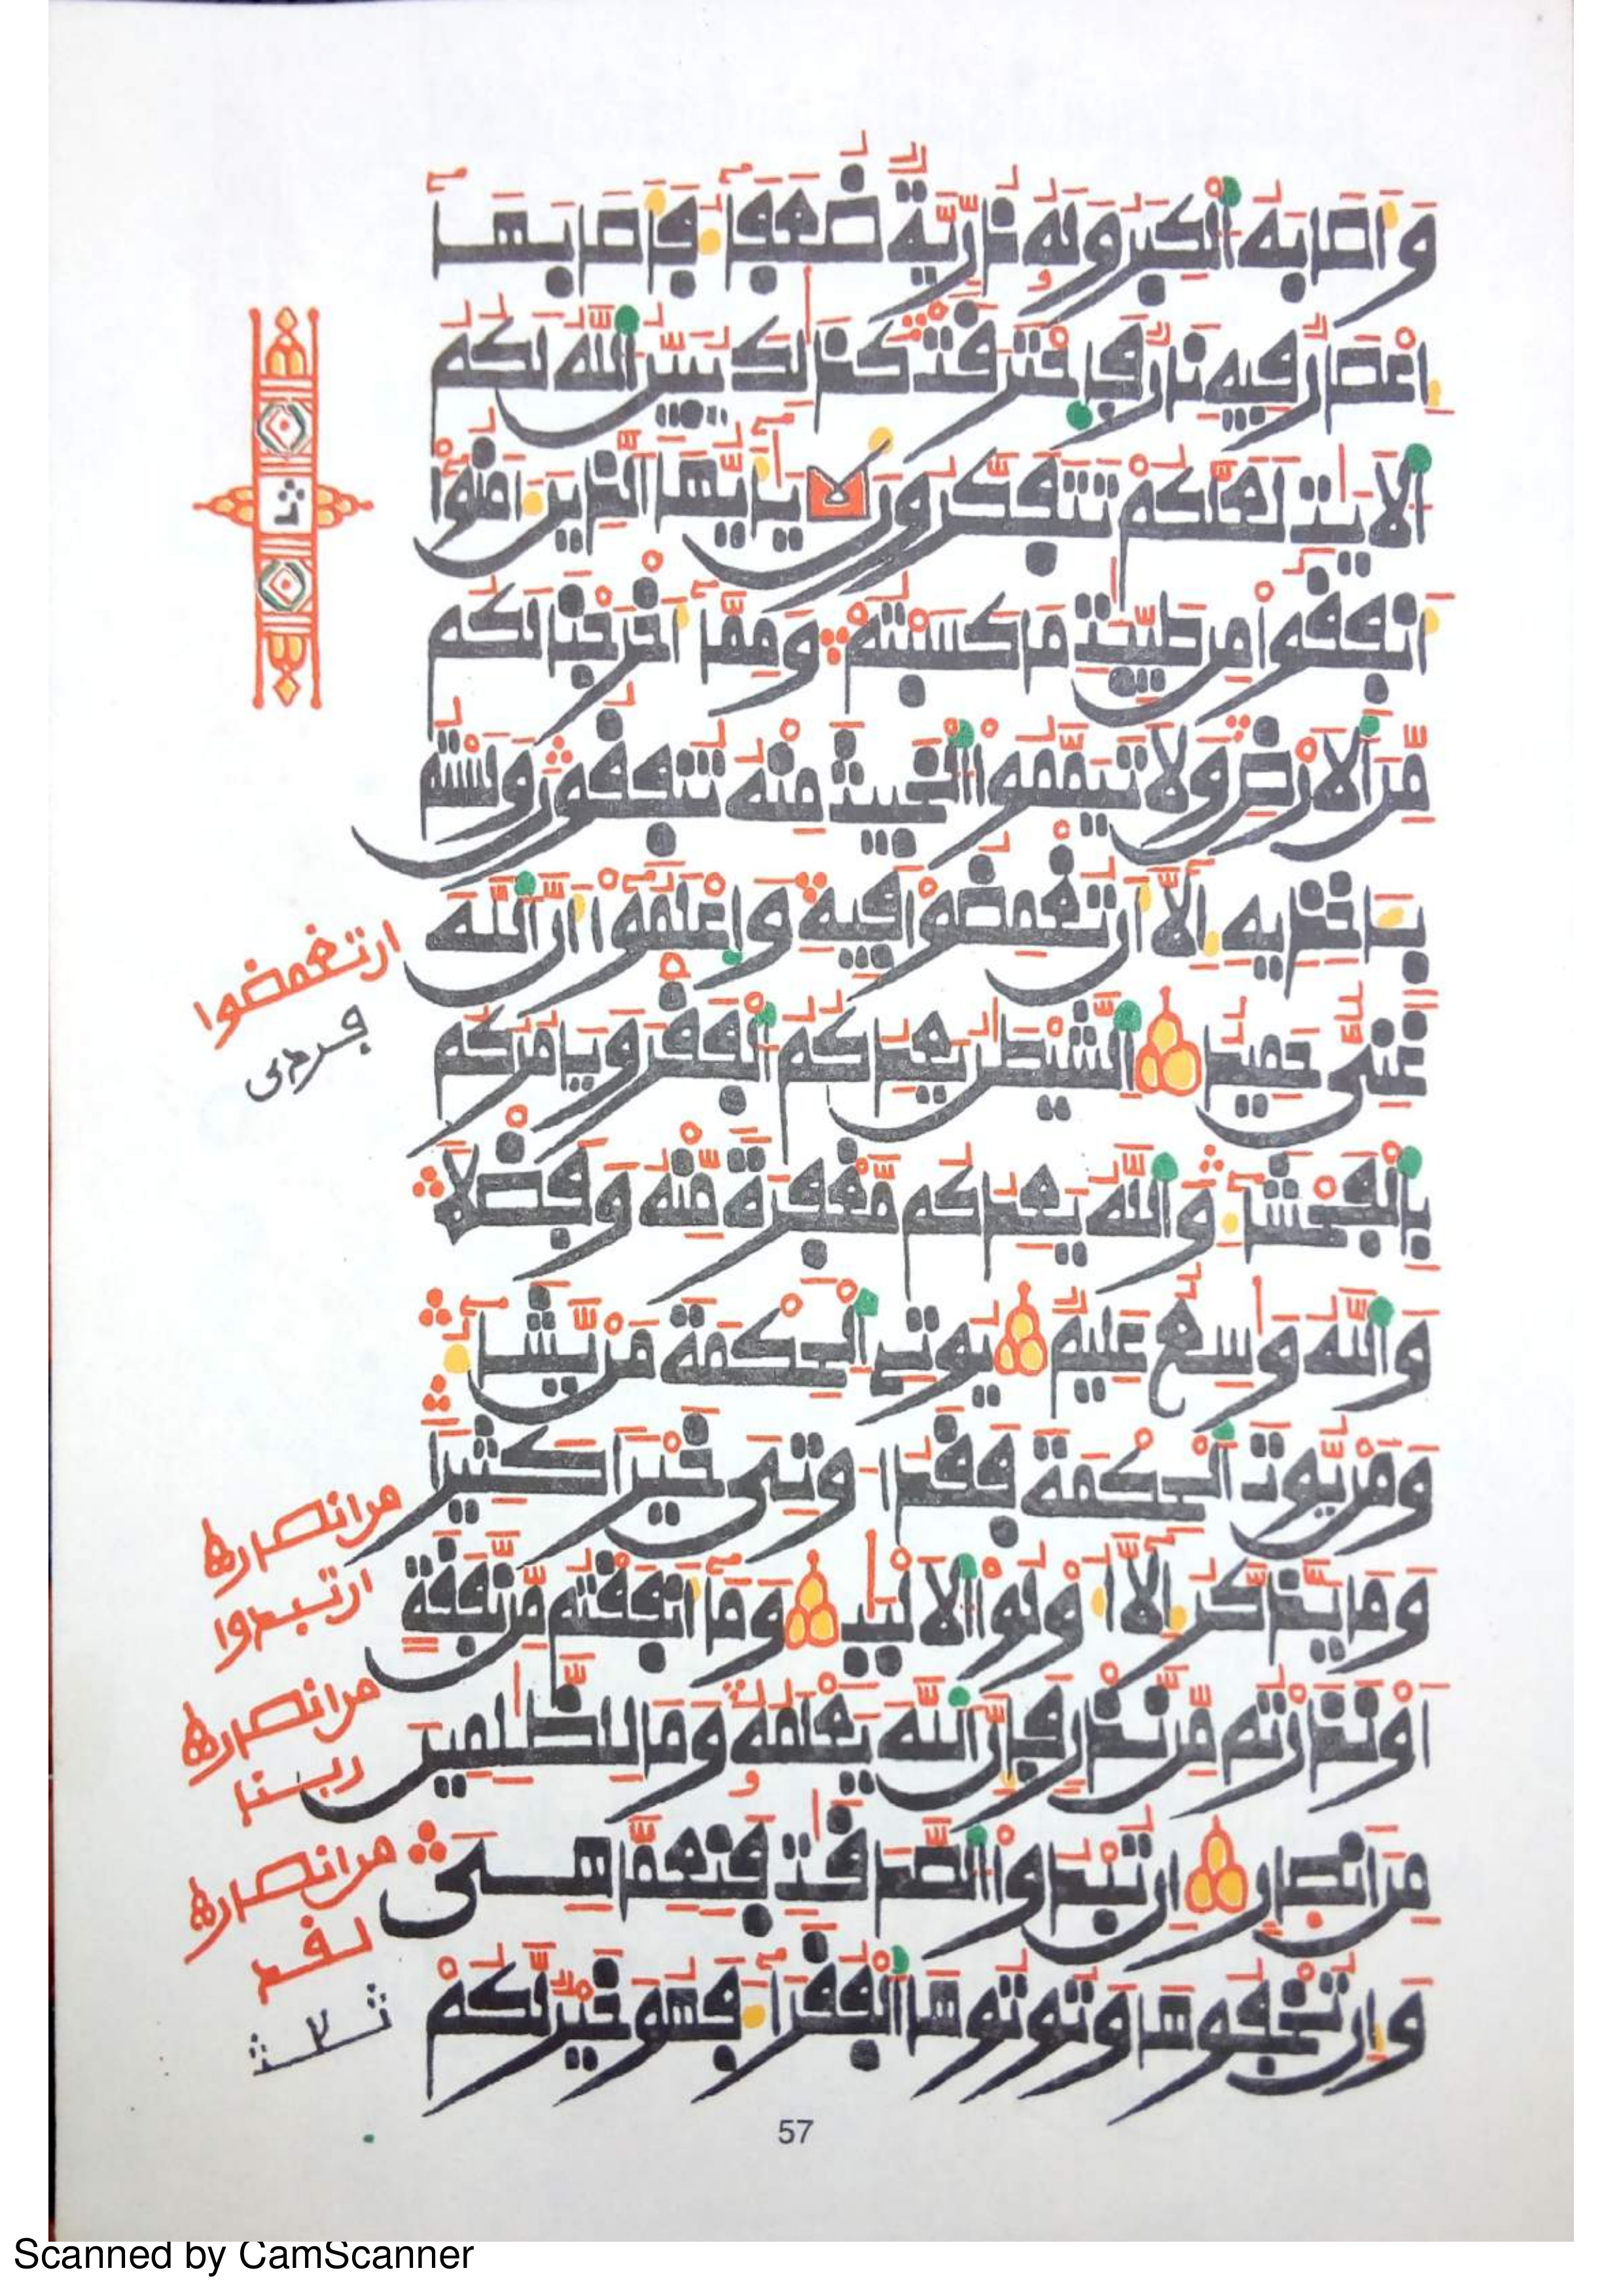 وَأَصَابَهُ ٱلْكِبَرُ وَلَهُۥ ذُرِّيَّةٌ ضُعَفَآءُ فَأَصَابَهَآ
إِعْصَارٌ فِيهِ نَارٌ فَٱحْتَرَقَتْ كَذَٰلِكَ يُبَيِّنُ ٱللَّهُ لَكُمُ
ٱلْأَيَٰتِ لَعَلَّكُمْ تَتَفَكَّرُونَ يَٰٓأَيُّهَا ٱلَّذِينَ ءَامَنُوٓا۟
أَنفِقُوا۟ مِن طَيِّبَٰتِ مَا كَسَبْتُمْ وَمِمَّآ أَخْرَجْنَا لَكُم
مِّنَ ٱلْأَرْضِ وَلَا تَيَمَّمُوا۟ ٱلْخَبِيثَ مِنْهُ تُنفِقُونَ وَلَسْتُم
بِـَٔاخِذِيهِ إِلَّآ أَن تُغْمِضُوا۟ فِيهِ وَٱعْلَمُوٓا۟ أَنَّ ٱللَّهَ
غَنِىٌّ حَمِيدٌ ٱلشَّيْطَٰنُ يَعِدُكُمُ ٱلْفَقْرَ وَيَامُرُكُم
بِٱلْفَحْشَآءِ وَٱللَّهُ يَعِدُكُم مَّغْفِرَةً مِّنْهُ وَفَضْلًا
وَٱللَّهُ وَٰسِعٌ عَلِيمٌ يُوتِى ٱلْحِكْمَةَ مَن يَّشَآءُ
وَمَن يُّوتَ ٱلْحِكْمَةَ فَقَدُ اوتِىَ خَيْرًا كَثِيرًا
وَمَا يَذَّكَّرُ إِلَّآ أُو۟لُوا۟ ٱلْأَلْبَٰبِ وَمَآ أَنفَقْتُم مِّن نَّفَقَةٍ
أَوْ نَذَرْتُم مِّن نَّذْرٍ فَإِنَّ ٱللَّهَ يَعْلَمُهُۥ وَمَا لِلظَّٰلِمِينَ
مِنْ أَنصَارٍ إِن تُبْدُوا۟ ٱلصَّدَقَٰتِ فَنِعِمَّا هِىَ
وَإِن تُخْفُوهَا وَتُوتُوهَا ٱلْفُقَرَآءَ فَهُوَ خَيْرٌ لَّكُمْ
ان تغمضوا
فردى
من انصار
ان تبدوا
من انصار
ربنا
من انصار
لقد
57
Scanned by CamScanner